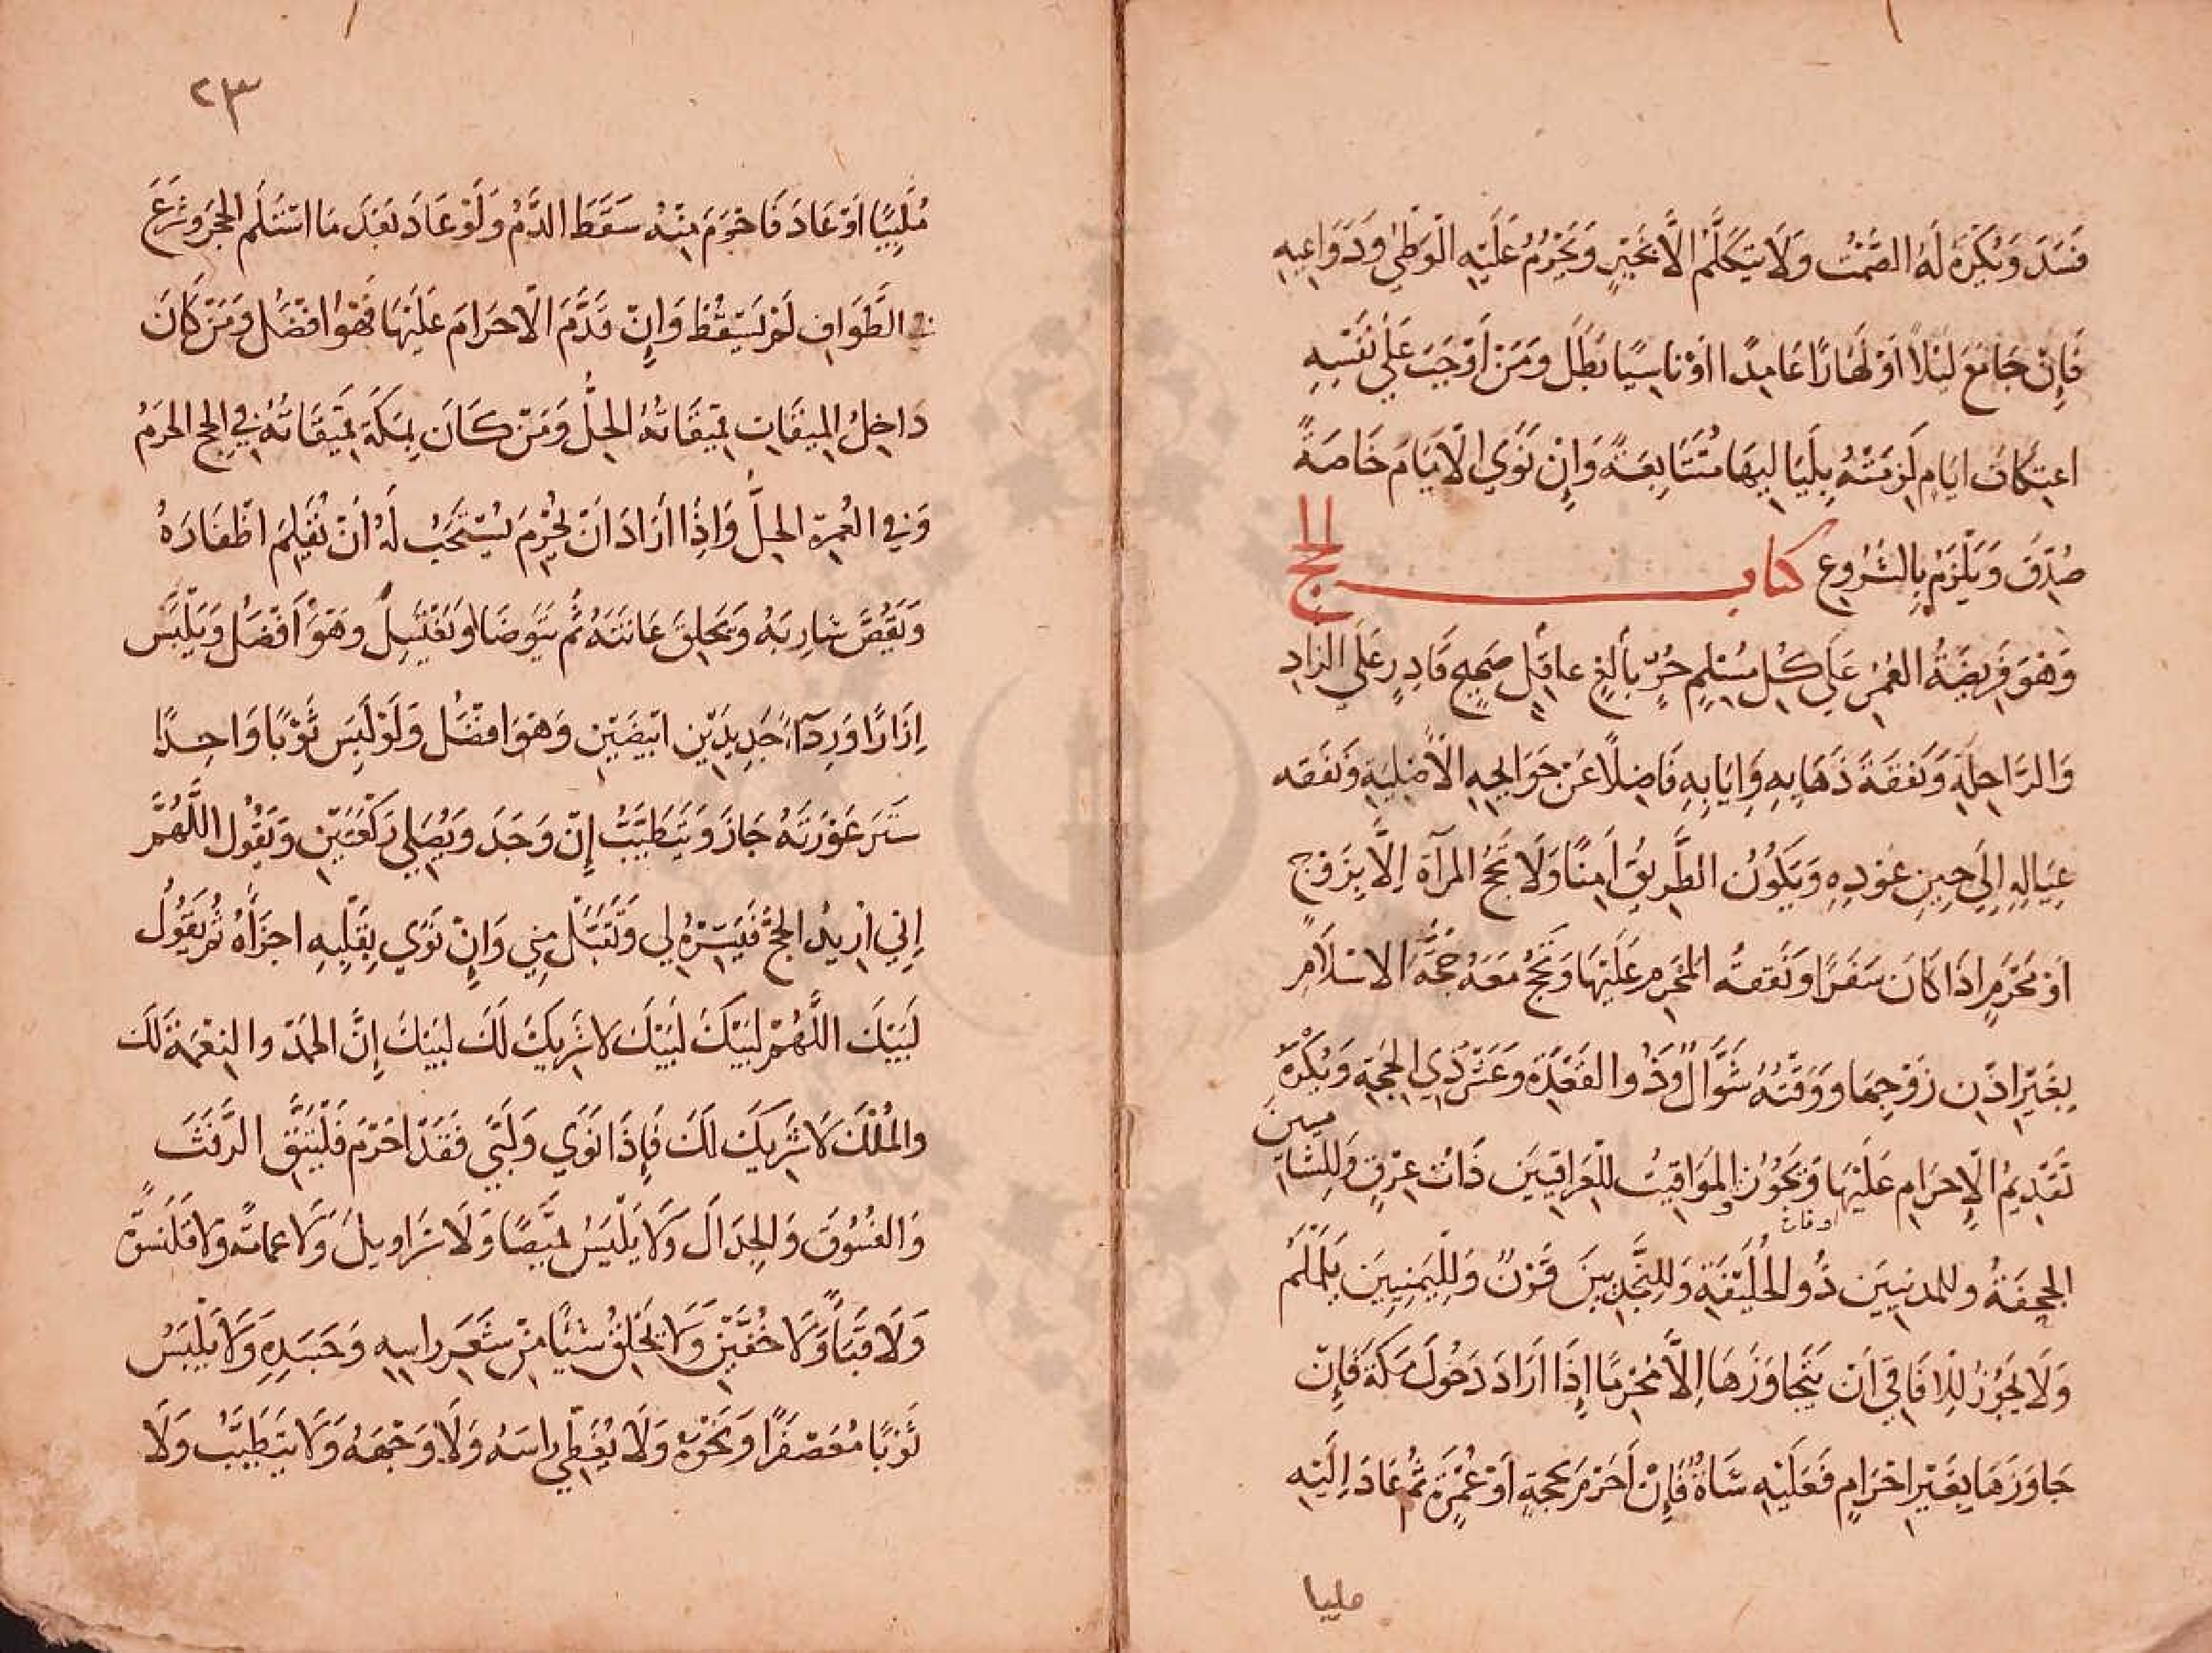 فَسَدَ وَيُكْرَهُ لَهُ الصَّمْتُ وَلَا يَتَكَلَّمُ الَّا بِخَيْرٍ وَيَحْرُمُ عَلَيْهِ الْوَطْيُ وَدَوَاعِيهِ
فَإِنْ جَامَعَ لَيْلًا اَوْ نَهَارًا عَامِدًا اَوْ نَاسِيًا بَطَلَ وَمَنْ اَوْجَبَ عَلَي نَفْسِهِ
اعتِكافَ ايَامٍ لَزِمَتْهُ بِلَيَا لِيهَا مُتَتَابِعَةً وَإِنْ نَوَي الْايَامَ خَاصَةً
صُدِّقَ وَيَلْزَمُ بِالشُرُوعِ كتاب الحج
وَهْوَ فَرِيضَةُ العُمْرِ عَلَي كُلِ مُسْلِمٍ حُرٍّ بَالِغٍ عاقِلٍ صَحِيحٍ قَادِرٍ عَلَي الزَادِ
وَالرَّاحِلَةِ وَنَفَقَةَ ذَهَابِهِ وَايَابِهِ فَاضِلًا عَنْ حَوَايجِهِ الْأَصْلِيَةِ وَنَفَقَه
عِيَالِهِ إِلَي حِينِ عَوْدِهِ وَيَكُونُ الطَّرِيقُ اَمِنًا وَلَا تَحُجُ المَرآة إِلَّا بِزَوْجٍ
اَوْ مَحْرَمٍ اذَا كَانَ سَفَرًا وَنَفَقةُ المَحْرَمِ عَلَيْهَا وَتَحُجُ مَعَهُ حَجَّةَ الاسْلَامِ
بِغَيْرِ اذْنِ زَوْجِهَا وَوَقْتُهُ شَوَّالٌ وَذُوا القَعْدَةِ وَعَشْرُ ذِي الحِجَةِ وَيُكْرَهُ
تَقْدِيمُ الْإحرَامِ عَلَيْهَا وَيَجُوزُ المَوَاقِيتُ لِلْعِرَاقِيينَ ذَاتُ عِرْقٍ وَلِلشَامِيينَ
الجحفَةُ وللمدنِيينَ ذُو الحُلَيْفَةِ وَلِلنَّجْدِيينَ قَرْنٌ وَلِلْيَمَنِيينَ يَلَمْلَمُ
وَلَا يَجُوزُ لِلْافَاقِي اَنْ يَتَجَاوَزَهَا إِلَّا مُحْرِمًا إِذَا اَرَادَ دَخُولَ مَكَةَ فَإِنْ
جَاوَزَهَا بِغَيْرِ احْرَامٍ فَعَلَيْهِ شَاةٌ فَإِنْ اَحْرَمَ بحجةٍ اَوْ عُمْرَةٍ ثُمَ عَادَ إِلَيْهِ
ملبيا
٢٣
مُلَبِيًا اَوْ عَادَ فَاحْرَمَ مِنْهُ سَقَطَ الدَّمُ وَلَوْ عَادَ بَعْدَ مَا اسْتَلَمَ الحَجَرَ وشَرَعَ
في الطَّوَافِ لَمْ يَسْقُطْ وَإِنْ قَدَّمَ الْاحرَامَ عَلَيْهَا فَهْوَ افْضَلُ وَمَنْ كَانَ
دَاخِلُ المِيقَاتِ فَمِيقَاتُهُ الحِلُّ وَمَنْ كَانَ بِمَكَةَ فَمِيقَاتُهُ فِي الحج الحرَمُ
وَفي العُمرَةِ الحِلُّ وَإِذَا اَرَادَ اَنْ يُحْرِمَ يُسْتَحَبُ لَهُ اَنْ يُقَلِمَ اظْفَارَهُ
وَيَقُصَّ شَارِبَهُ وَيَحلِقَ عَانَتَهُ ثُم يَتَوضَا اَوْ يَغْتَسِلُ وَهْوَ اَفْضَلُ وَيَلْبَسَ
اِزَارًا وَرِدَآءً جَدِيدَيْنِ ابْيَضَيْنِ وَهْوَ افْضَلُ وَلَوْ لَبِسَ ثَوْبًا وَاحِدًا
سَتَرَ عَوْرَتَهُ جَازَ وَيَتَطَيَّبُ إِنْ وَجَدَ وَيُصَلِي رَكْعَتَيْنِ وَيَقُول اللَّهُمَّ
إِنِي ارِيدُ الحَجَّ فَيَسِّرْهُ لي وَتَقَبَّلْ مِنِي وَإِنْ نَوَي بِقَلْبِهِ اجزَأَهُ ثُم يَقُولُ
لَبَيْكَ اللَّهُمْ لَبَيْكَ لَبَيْكَ لا شَرِيكَ لَكَ لَبَيْكَ إِنَّ الحَمْدَ والنِعْمَةَ لَكَ
والمُلْكَ لَا شَرِيكَ لَكَ فَإِذَا نَوَي وَلَبَّي فَقَدْ احْرَمَ فَلْيَتَّقِ الرَّفَثَ
وَالفُسُوقَ وَالجِدَالَ وَلَا يَلْبَسْ قَمِيصًا وَلَا سَرَاويلَ وَلَا عمَامَةً وَلَا قَلَنسُوَةً
وَلَا قَبَاً وَلَا خُفَّيْنِ وَلَا يَحْلِقُ شَيْئًا مِنْ شَعَرِ رَاسِهِ وَجَسَدِهِ وَلَا يَلْبَسُ
ثَوْبًا مُعَصْفَرًا وَنَحْوَهُ وَلَا يُغَطِّي رَاسَهُ وَلَا وَجْهَهُ وَلَا يَتَطَيَّبُ وَلَا